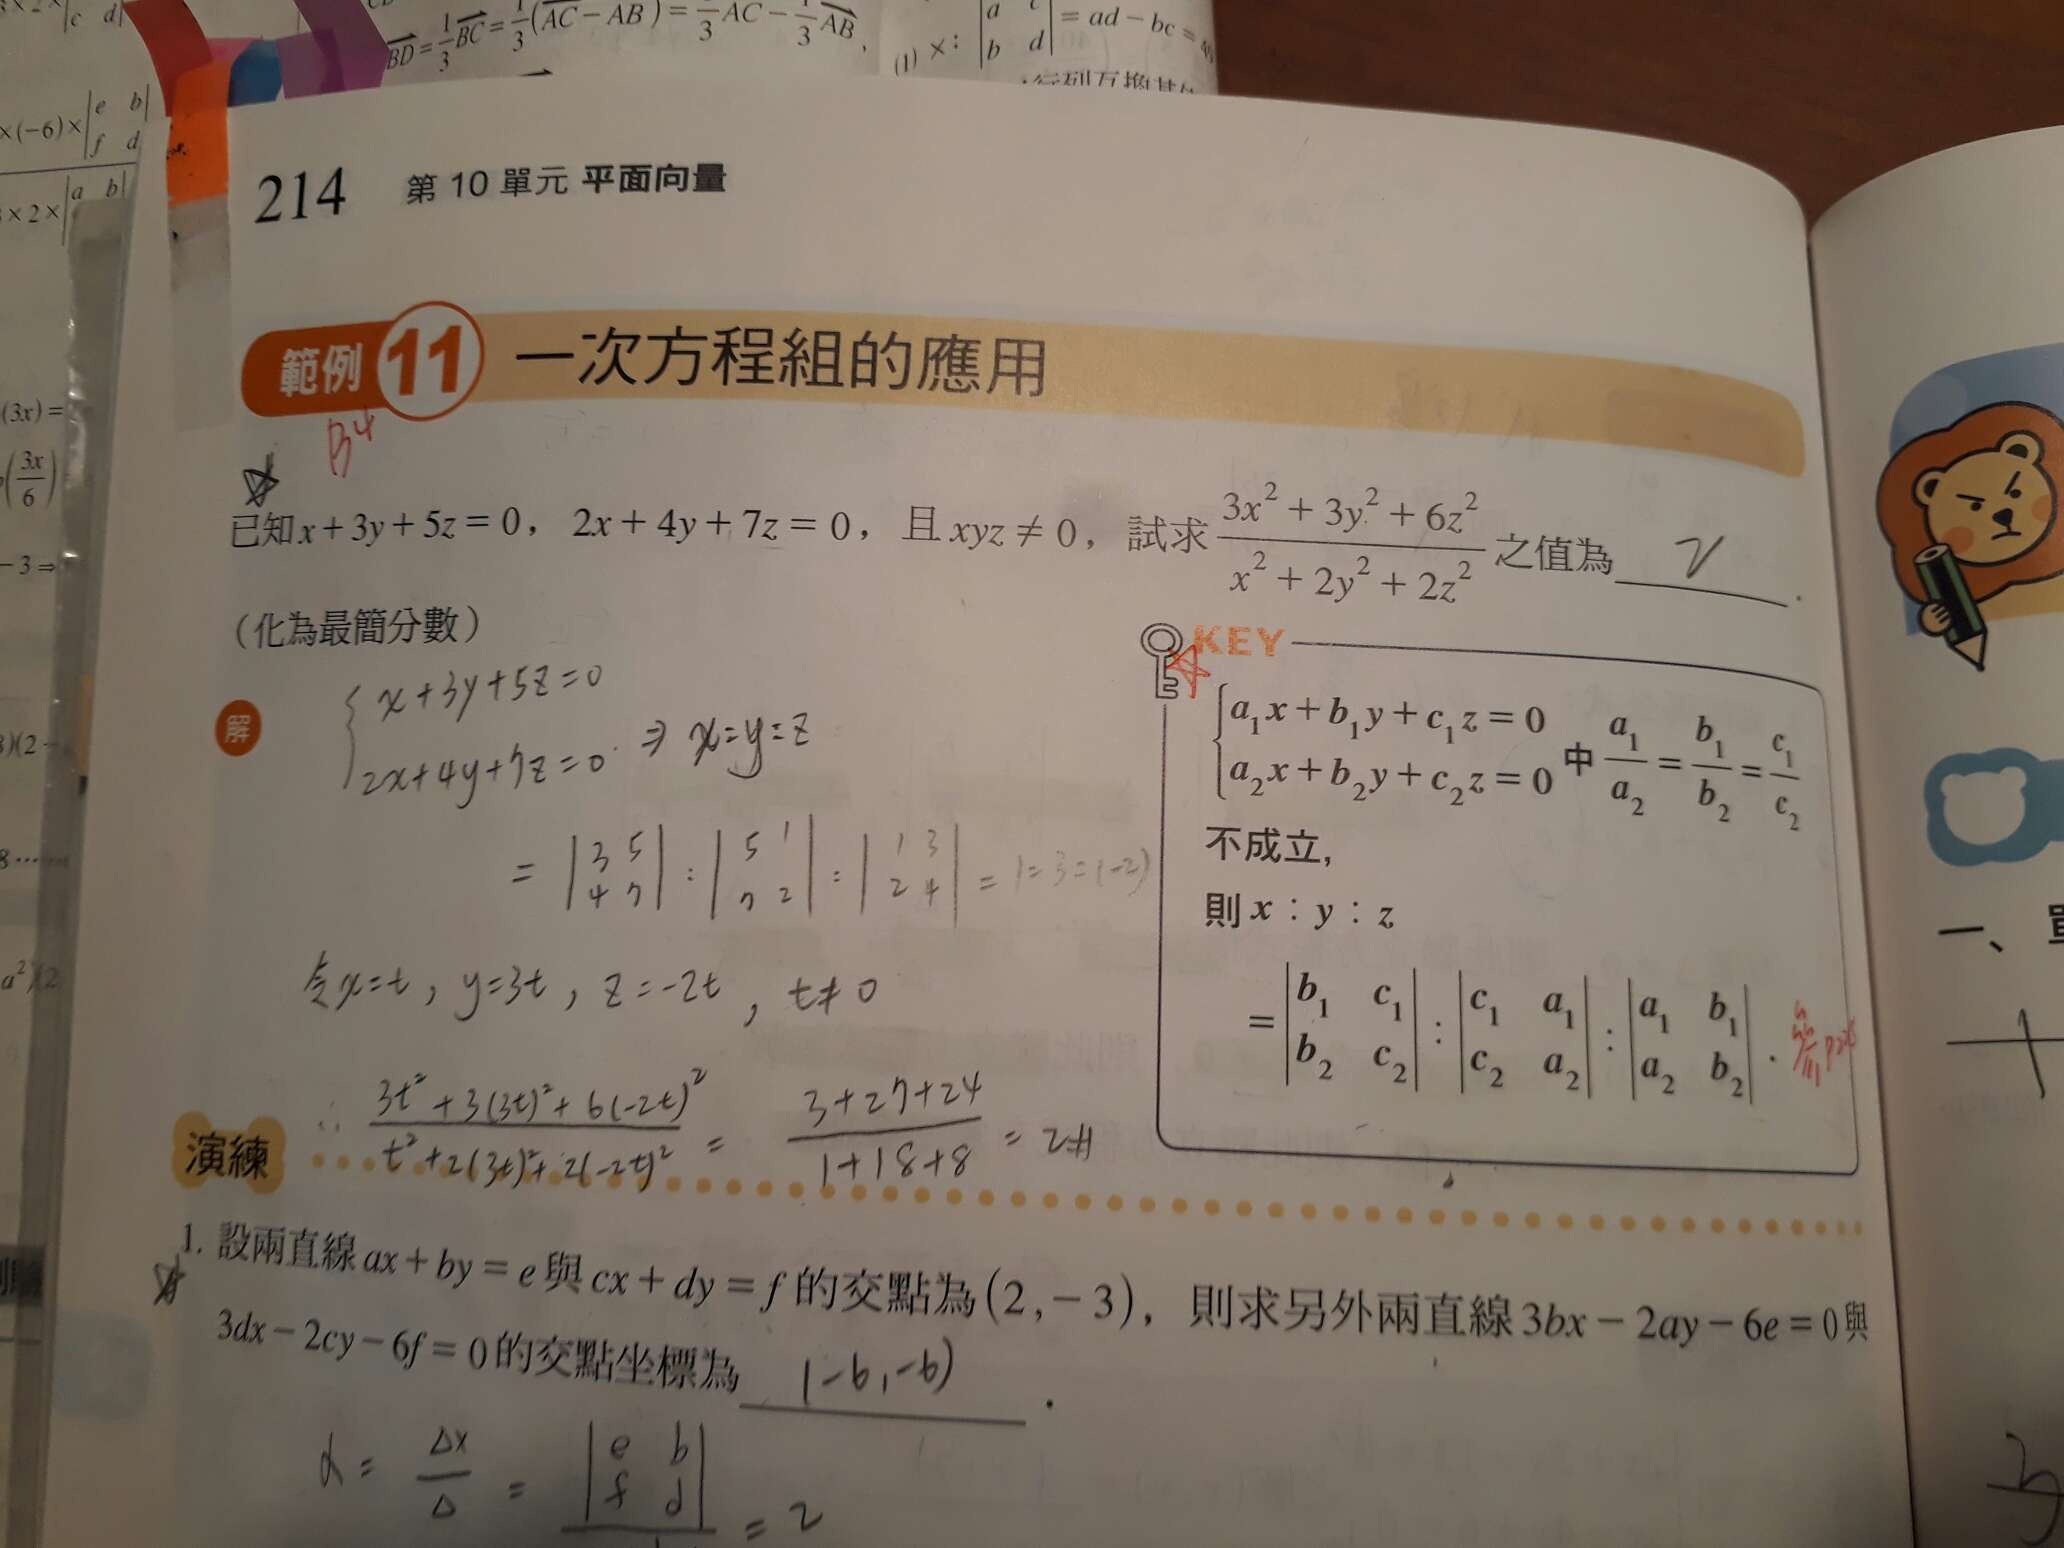 BD = 1/3 BC = 1/3(AC − AB) = 1/3 AC − 1/3 AB,
(1) ×: |a c; b d| = ad − bc =
×(−6)×|e b; f d|
×2×|a b|
(3x) =
(3x/6)
−3 ⇒
214 第 10 單元 平面向量
範例 11 一次方程組的應用
B4
已知 x + 3y + 5z = 0，2x + 4y + 7z = 0，且 xyz ≠ 0，試求 (3x² + 3y² + 6z²)/(x² + 2y² + 2z²) 之值為 2 .
（化為最簡分數）
解
{ x+3y+5z=0
2x+4y+7z=0 ⇒ x=y=z
= |3 5; 4 7| : |5 1; 7 2| : |1 3; 2 4| = 1=3=(-2)
令x=t , y=3t , z=-2t , t≠0
∴ (3t²+3(3t)²+6(-2t)²)/(t²+2(3t)²+2(-2t)²) = (3+27+24)/(1+18+8) = 2#
KEY
{ a₁x + b₁y + c₁z = 0
a₂x + b₂y + c₂z = 0 中 a₁/a₂ = b₁/b₂ = c₁/c₂
不成立，
則 x : y : z
= |b₁ c₁; b₂ c₂| : |c₁ a₁; c₂ a₂| : |a₁ b₁; a₂ b₂| .
演練
1. 設兩直線 ax + by = e 與 cx + dy = f 的交點為 (2 , −3)，則求另外兩直線 3bx − 2ay − 6e = 0 與
3dx − 2cy − 6f = 0 的交點坐標為 (-6,-6) .
α = Δx/Δ = |e b; f d| = 2
一、